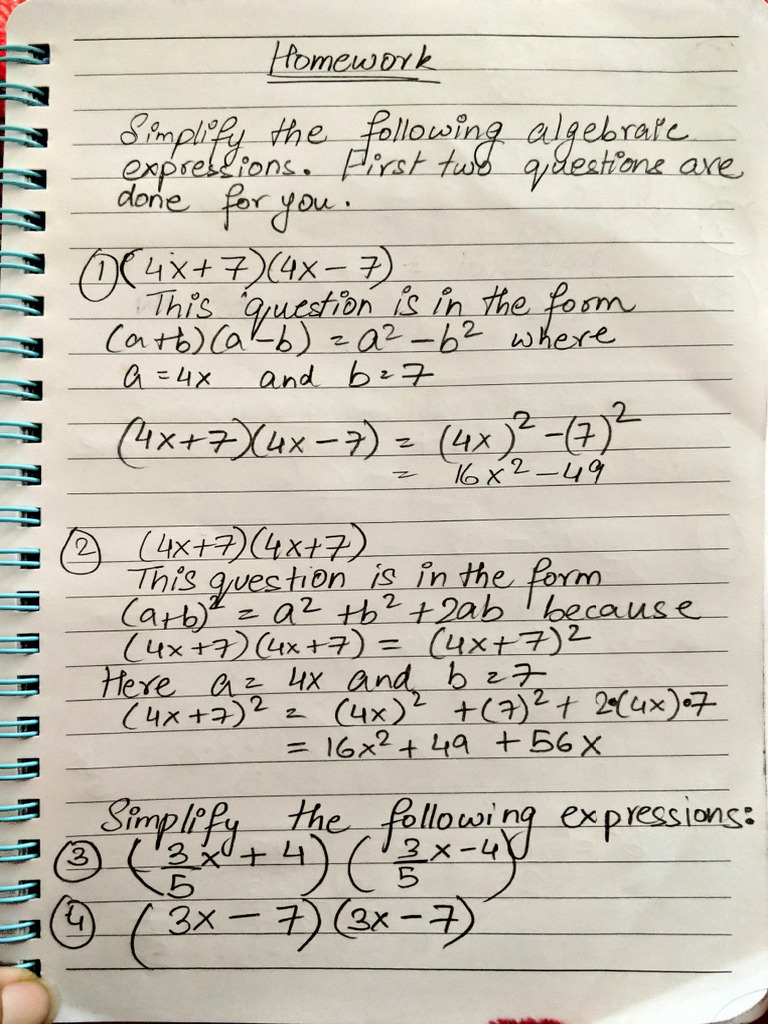 Homework
Simplify the following algebraic
expressions. First two questions are
done for you.
① (4x+7)(4x-7)
This question is in the form
(a+b)(a-b) = a² - b² where
a = 4x and b = 7
(4x+7)(4x-7) = (4x)² - (7)²
= 16x² - 49
② (4x+7)(4x+7)
This question is in the form
(a+b)² = a² + b² + 2ab because
(4x+7)(4x+7) = (4x+7)²
Here a = 4x and b = 7
(4x+7)² = (4x)² + (7)² + 2•(4x)•7
= 16x² + 49 + 56x
Simplify the following expressions:
③ (3/5 x + 4)(3/5 x - 4)
④ (3x - 7)(3x - 7)